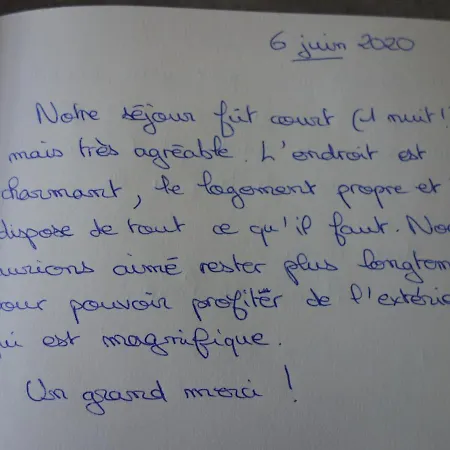 6 juin 2020
Notre séjour fût court (1 nuit!
mais très agréable. L'endroit est
charmant, le logement propre et
dispose de tout ce qu'il faut. No
urions aimé rester plus longtem
our pouvoir profiter de l'extéri
ui est magnifique.
Un grand merci !